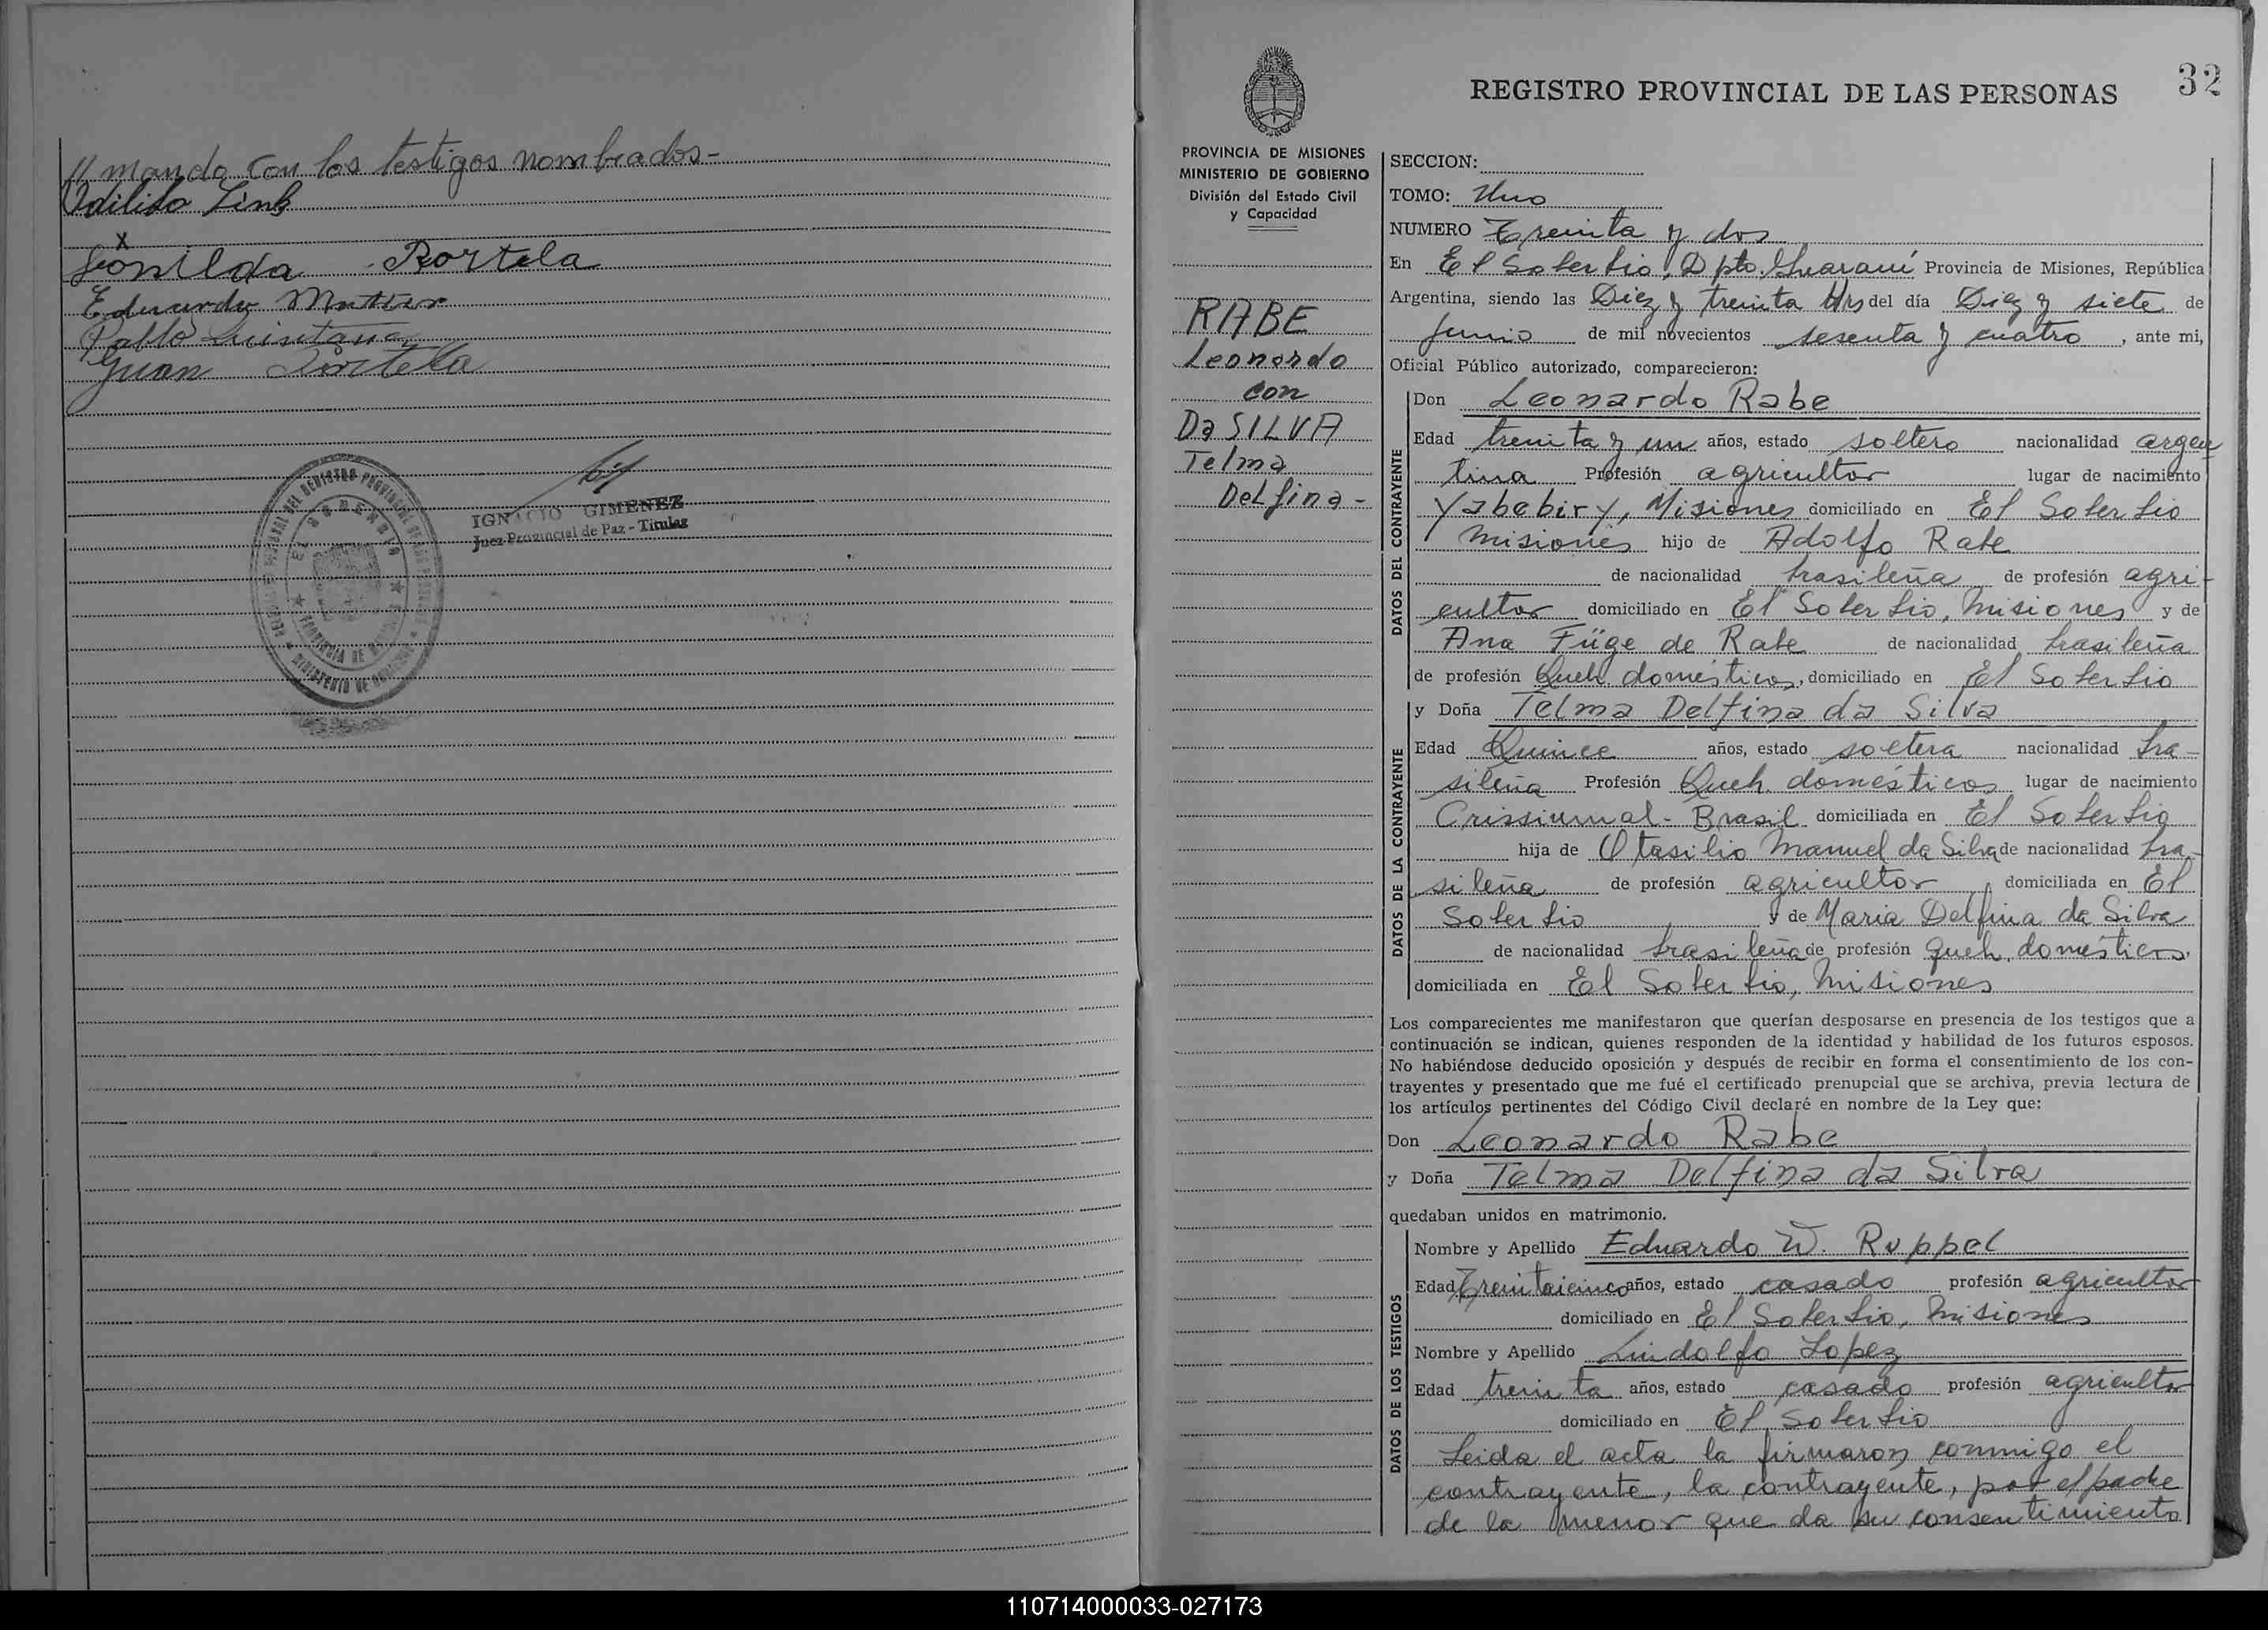 // mando con los testigos nombrados-
Odilito Link
x
Leonilda Portela
Eduardo
Pablo Quintana
Juan Portela
IGNACIO GIMENEZ
Juez Provincial de Paz - Titular
32
REGISTRO PROVINCIAL DE LAS PERSONAS
PROVINCIA DE MISIONES
MINISTERIO DE GOBIERNO
División del Estado Civil
y Capacidad
RABE
Leonardo
con
Da SILVA
Telma
Delfina-
SECCION:
TOMO: Uno
NUMERO Treinta y dos
En El Soberbio, Dpto. Guaraní Provincia de Misiones, República
Argentina, siendo las Diez y treinta Hrs del día Diez y siete de
Junio de mil novecientos sesenta y cuatro, ante mi,
Oficial Público autorizado, comparecieron:
DATOS DEL CONTRAYENTE
Don Leonardo Rabe
Edad treinta y un años, estado soltero nacionalidad argen
tina Profesión agricultor lugar de nacimiento
Yabebiry, Misiones domiciliado en El Soberbio
Misiones hijo de Adolfo Rabe
de nacionalidad brasileña de profesión agri-
cultor domiciliado en El Soberbio, Misiones y de
Ana Füge de Rabe de nacionalidad brasileña
de profesión Queh. domésticos, domiciliado en El Soberbio
DATOS DE LA CONTRAYENTE
y Doña Telma Delfina da Silva
Edad Quince años, estado soltera nacionalidad bra-
sileña Profesión Queh. domésticos lugar de nacimiento
Crissiumal - Brasil domiciliada en El Soberbio
hija de Otasilio Manuel da Silva de nacionalidad bra-
sileña de profesión agricultor domiciliada en El
Soberbio y de Maria Delfina da Silva
de nacionalidad brasileña de profesión queh. domésticos.
domiciliada en El Soberbio, Misiones
Los comparecientes me manifestaron que querían desposarse en presencia de los testigos que a
continuación se indican, quienes responden de la identidad y habilidad de los futuros esposos.
No habiéndose deducido oposición y después de recibir en forma el consentimiento de los con-
trayentes y presentado que me fué el certificado prenupcial que se archiva, previa lectura de
los artículos pertinentes del Código Civil declaré en nombre de la Ley que:
Don Leonardo Rabe
y Doña Telma Delfina da Silva
quedaban unidos en matrimonio.
DATOS DE LOS TESTIGOS
Nombre y Apellido Eduardo W. Ruppel
Edad Treintaicinco años, estado casado profesión agricultor
domiciliado en El Soberbio, Misiones
Nombre y Apellido Lindolfo Lopez
Edad treinta años, estado casado profesión agricultor
domiciliado en El Soberbio
Leida el acta la firmaron conmigo el
contrayente, la contrayente, por el padre
de la menor que da su consentimiento
110714000033-027173